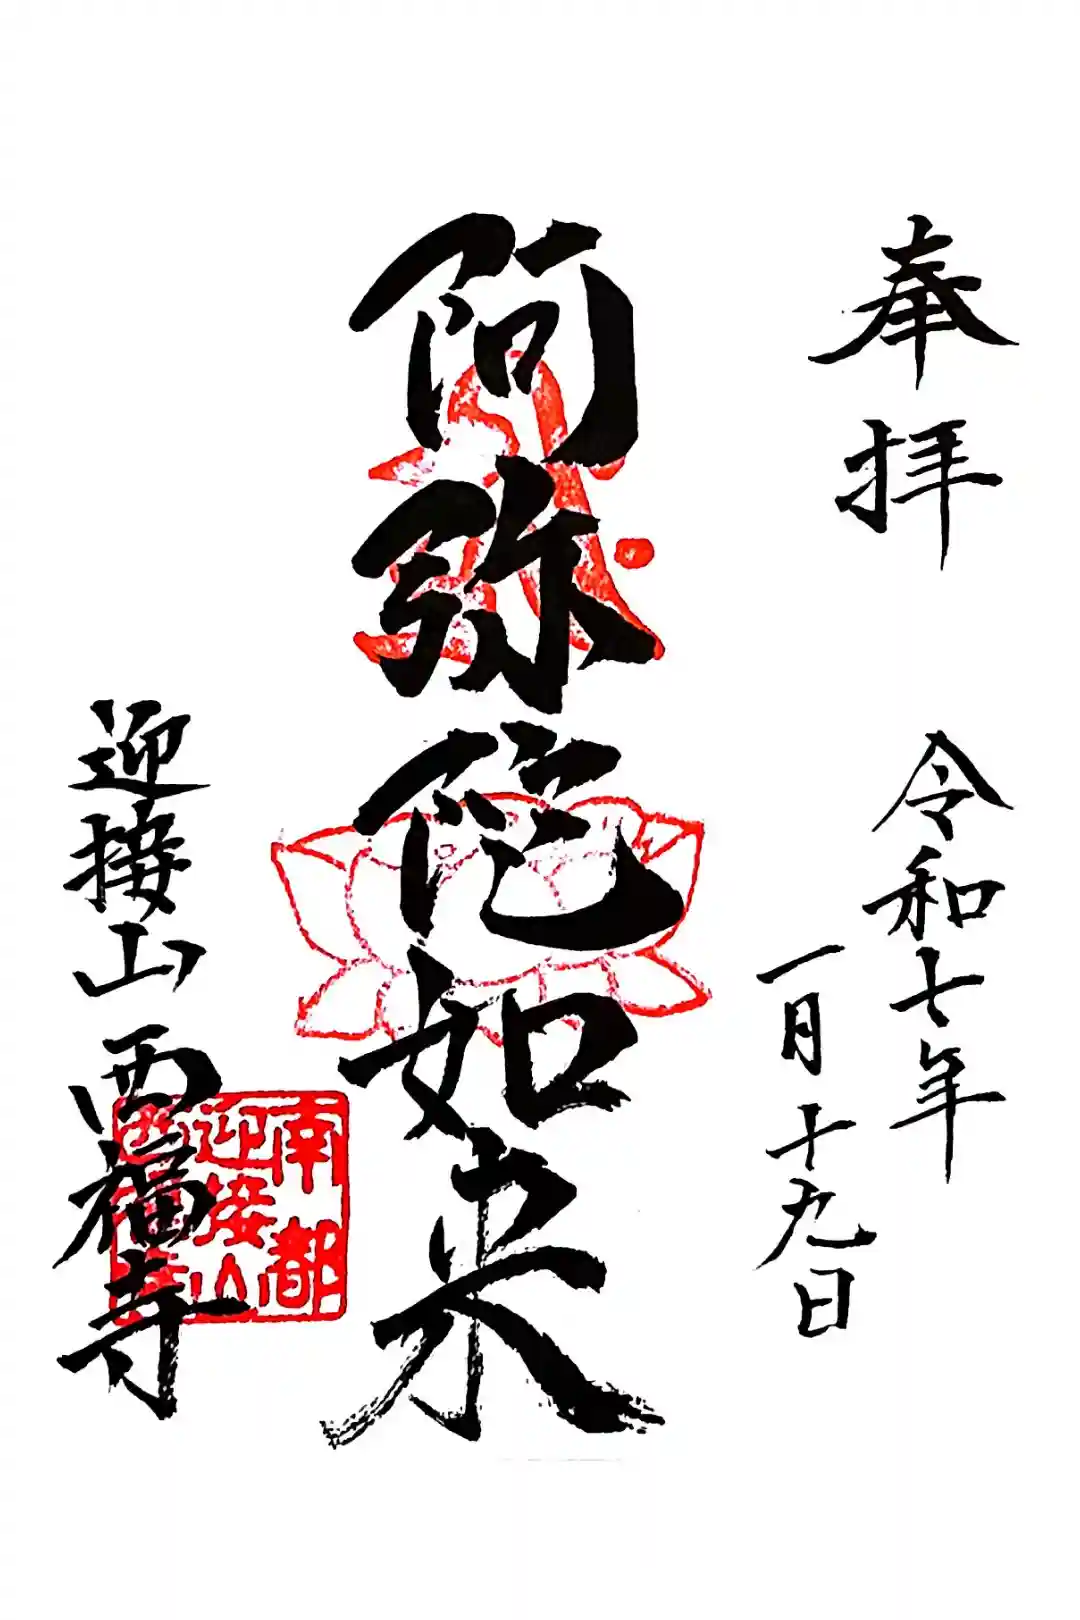 奉拝
令和七年
一月十九日
阿弥陀如来
迎接山 西福寺
南都
迎接山
西福寺